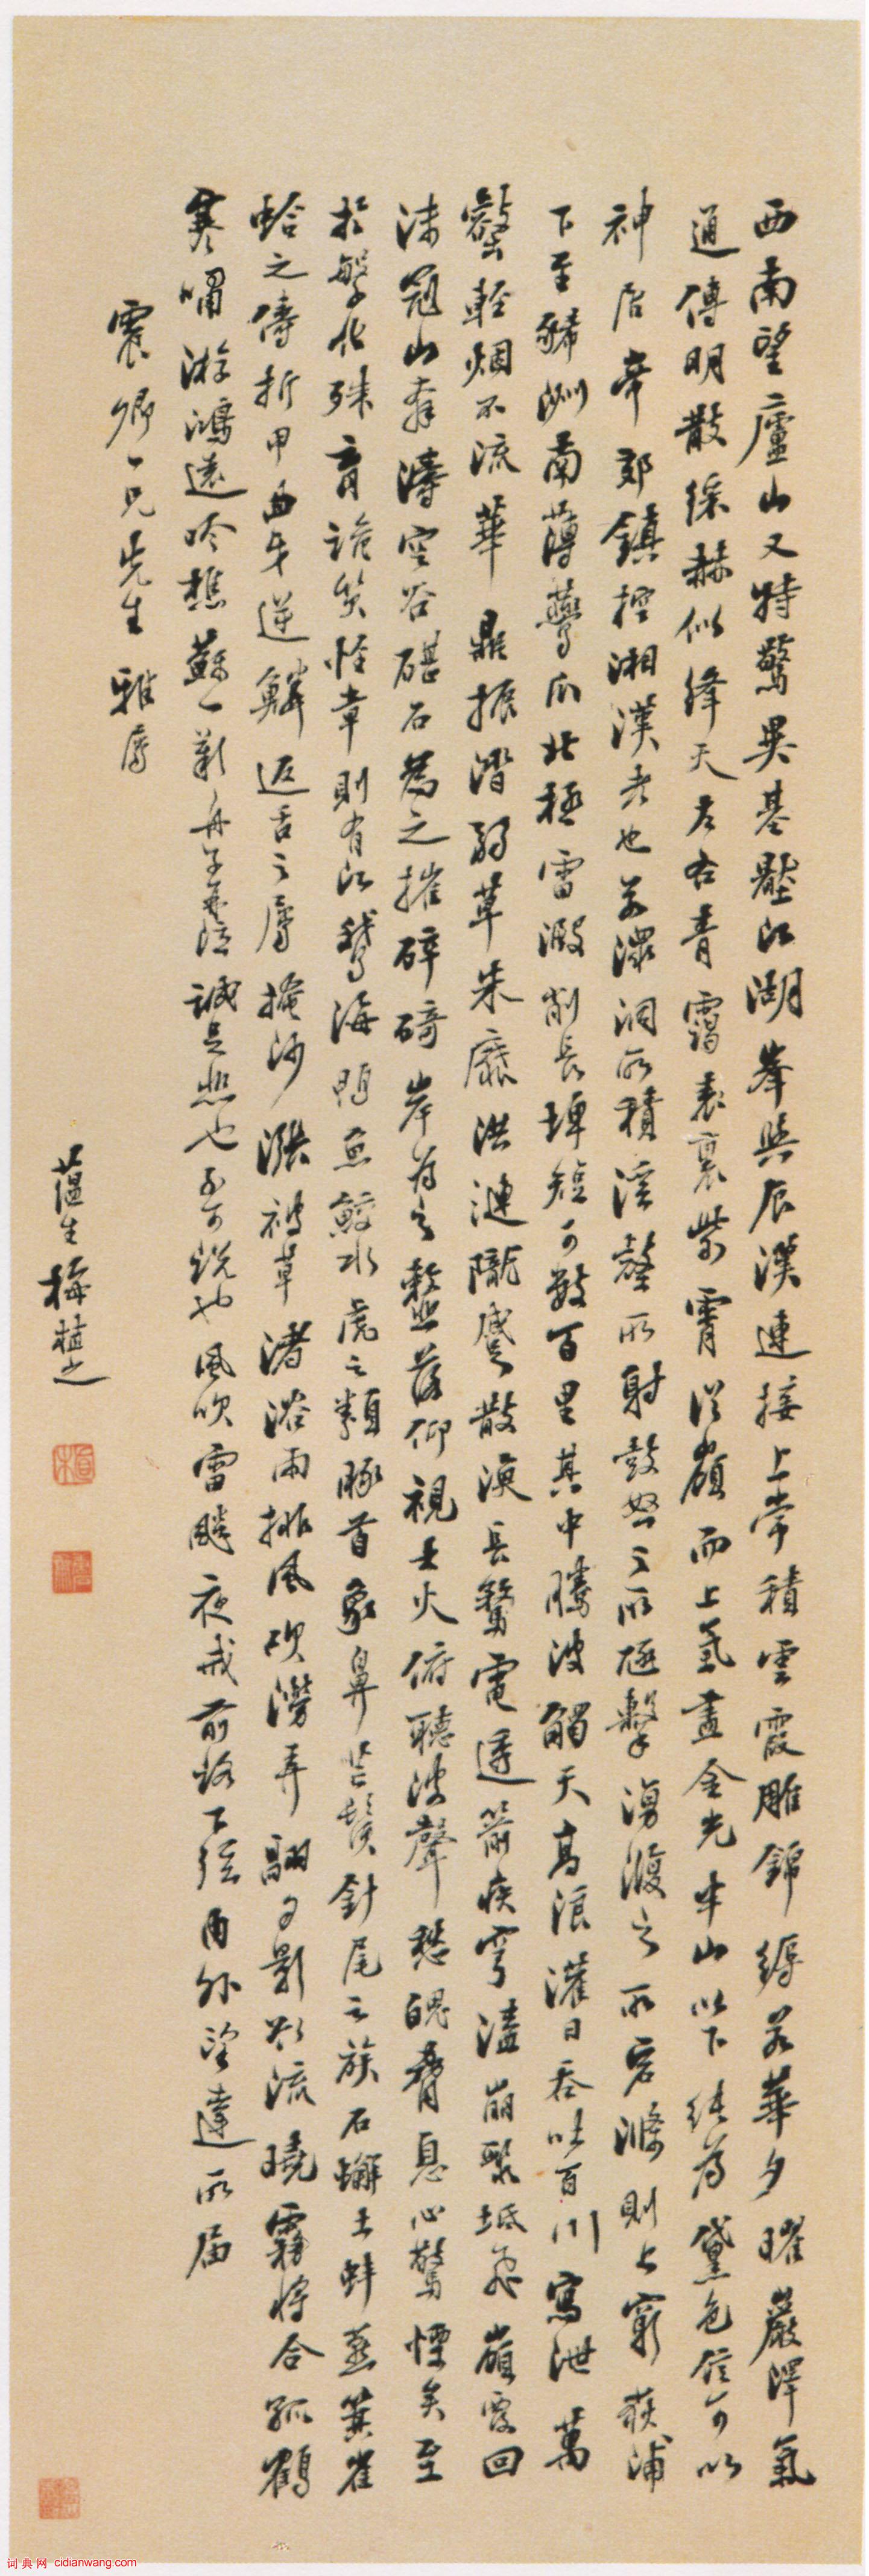 西南望廬山又特驚異基壓江湖峯與辰漢連接上常積雲霞雕錦縟若華夕曜巖澤氣
通傳明散綵赫似絳天左右青靄表裏紫霄從嶺而上氣盡金光半山以下純為黛色信可以
神居帝郊鎮控湘漢者也若潀洞所積溪壑所射鼓怒之所豗擊湧澓之所宕滌則上窮荻浦
下至狶洲南薄鷰爪北極雷澱削長埤短可數百里其中騰波觸天高浪灌日吞吐百川寫泄萬
壑輕烟不流華鼎振涾弱草朱靡洪漣隴蹙散渙長驚電透箭疾穹溘崩聚坻飛嶺覆回
沫冠山奔濤空谷碪石為之摧碎碕岸為之䪠落仰視大火俯聽波聲愁魄脅息心驚慓矣至
於繁化殊育詭質怪章則有江鵝海鴨魚鮫水虎之類豚首象鼻芒鬚針尾之族石蠏土蚌燕箕雀
蛤之儔折甲曲牙逆鱗返舌之屬掩沙漲被草渚浴雨排風吹澇弄翮夕影欲流曉霧將合孤鶴
寒嘯游鴻遠吟樵蘇一歎舟子再泣誠足悲也不可說也風吹雷飆夜戒前路下弦內外望達所屆
震卿一兄先生雅屬
蘊生梅植之
词典网 cidianwang.com